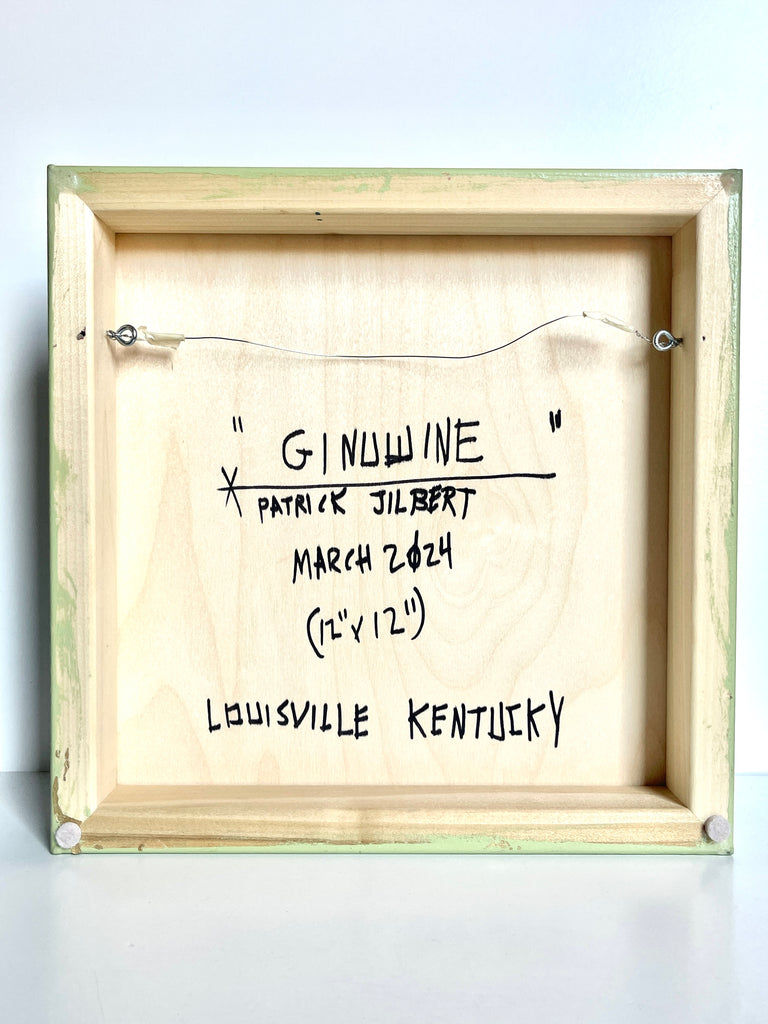 " GINUWINE "
X PATRICK JILBERT
MARCH 2024
(12" x 12")
LOUISVILLE KENTUCKY